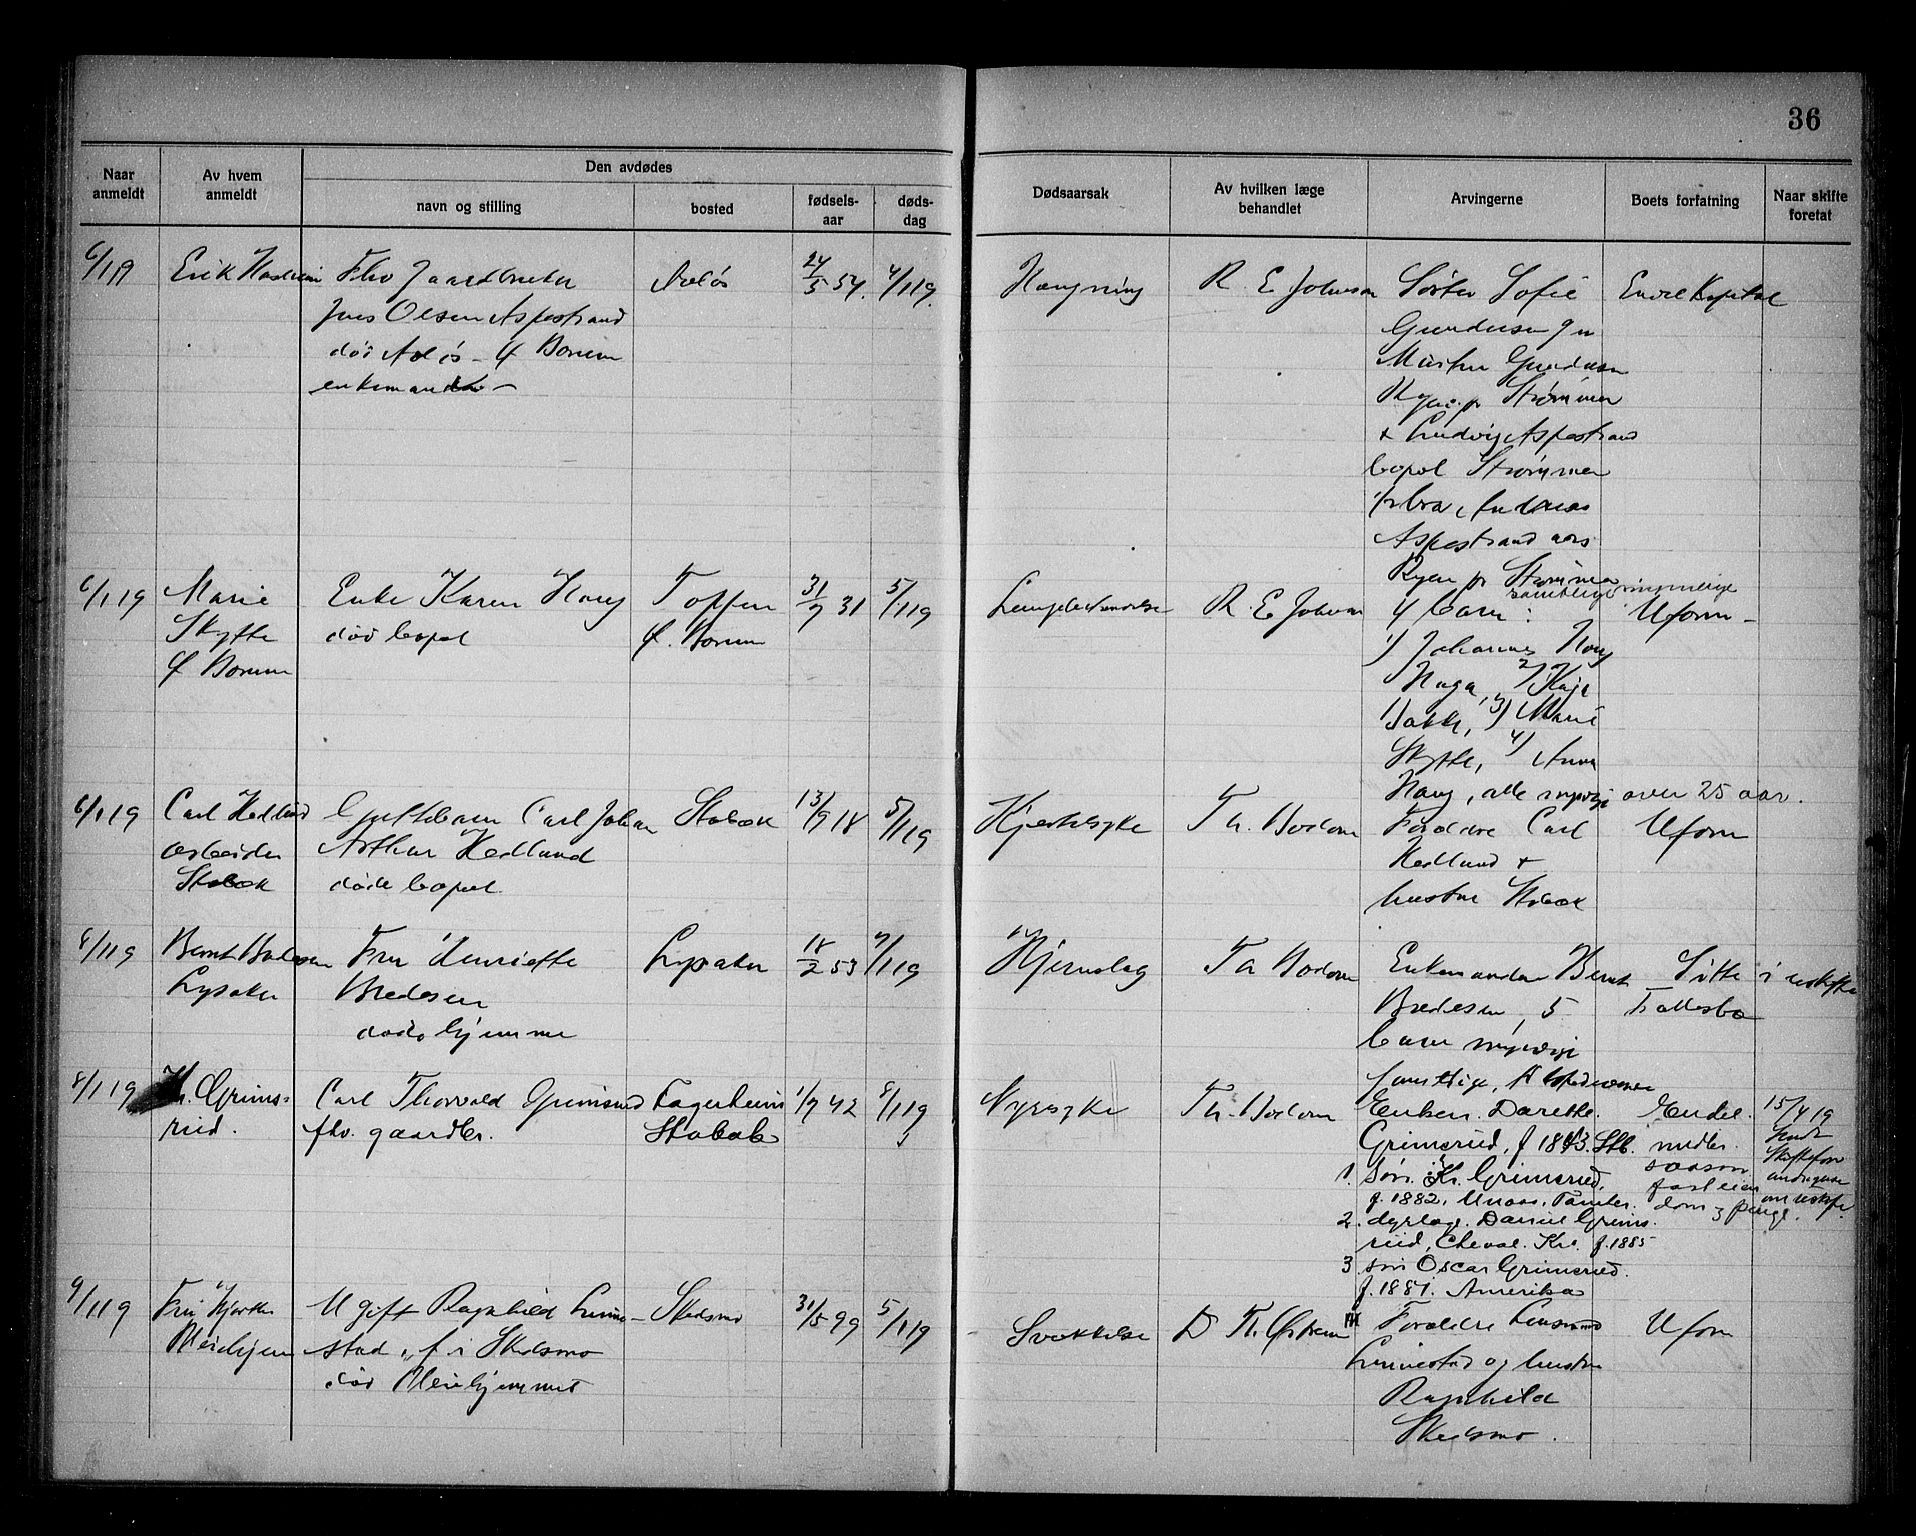 36
Naar anmeldt
Av hvem anmeldt
Den avdødes
navn og stilling
bosted
fødsels-aar
døds-dag
Dødsaarsak
Av hvilken læge behandlet
Arvingerne
Boets forfatning
Naar skifte foretat
6/1 19
Erik
Fhv gaardbruker
Jens Olsen Aspestrand
død
enkemand
24/5 54.
4/1 19.
Hængning
R. E Johnson
Søster Sofie
Gundersen
Gundersen
Strømmen
& Ludvig Aspestrand
bopel Strømmen
Andreas
Aspestrand
Ryen pr Strømmen
Endel Kapital
6/1 19
Marie
Skytte
Enke Karen Haug
død bopel
Toppen
31/7 31
5/1 19
Lungebetændelse
R. E Johnson
samtlige myndige
4 barn:
1) Johannes Haug
Haga, 2) Kaja
Bakke, 3) Marie
Skytte, 4) Anna
Haug, alle myndige over 25 aar.
Uform
6/1 19
Carl Hedlund
arbeider
Stabæk
Gutteba​rn Carl Johan
Arthur Hedlund
døde bopæl
Stabæk
13/9 18
5/1 19
Hjertesyke
Th. Bodom
Forældre Carl
Hedlund +
hustru Stabæk
Uform
8/1 19
Bernt Bredesen
Lysaker
Fru Henriette
Bredesen
døde hjemme
Lysaker
18/2 53
7/1 19
Hjerneslag
Th Bodom
Enkemanden Bernt
Bredesen, 5
barn myndige
Sitte i uskiftet
Fællesbo
8/1 19
Kr. Grims-
rud.
Carl Thorvald Grimsrud
fhv. gaardbr.
Fagerheim
Stabæk
1/7 42
8/1 19
Nyresyke
Th. Bodom
Enken. Dorethe.
Grimsrud, f 1843. Stb.
1. søn. Kr. Grimsrud,
f. 1882.
2. dyrlæge. Daniel Grims-
rud, f. 1885
3 søn Oscar Grimsrud.
f. 1881. Amerika
Endel
midler.
saasom
fast eien
dom og penge.
15/4 19
9/1 19
Fru Hjorth
Pleiehjem
Ugift Ragnhild Linne-
stad, f i Skedsmo
død Pleiehjemmet
Skedsmo
31/5 99
5/1 19
Svækkelse
D Th. Østrem
Forældre
Linnestad og hustru
Ragnhild
Skedsmo.
Uform